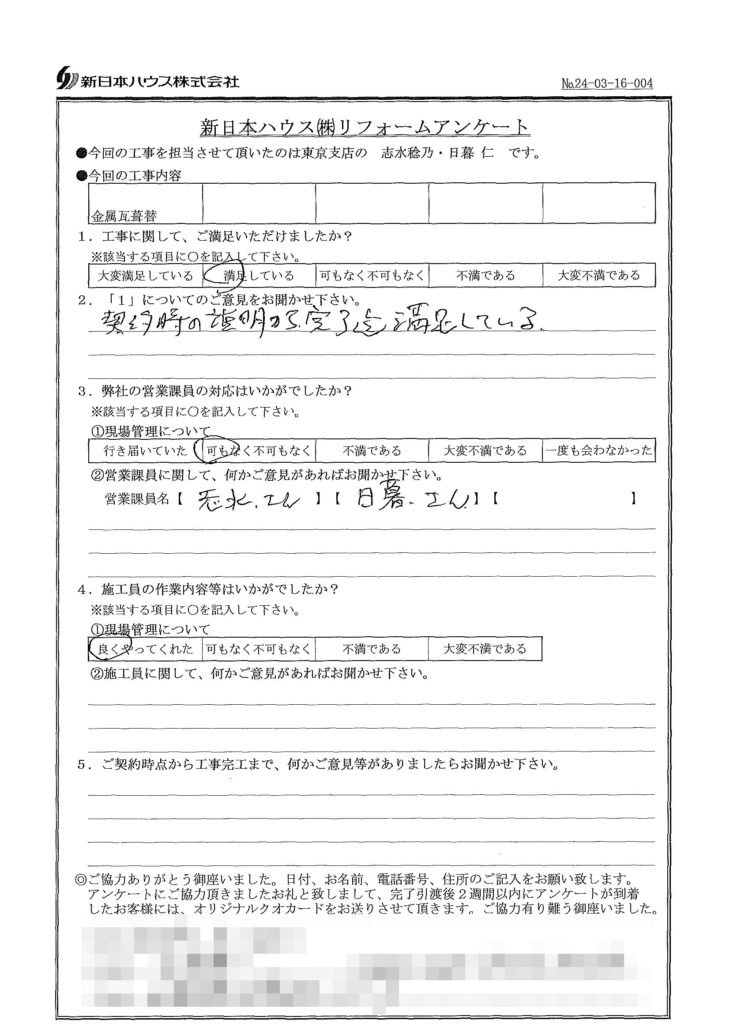 新日本ハウス株式会社
No.24-03-16-004
新日本ハウス㈱リフォームアンケート
●今回の工事を担当させて頂いたのは東京支店の 志水稔乃・日暮 仁 です。
●今回の工事内容
金属瓦葺替
1．工事に関して、ご満足いただけましたか？
※該当する項目に○を記入して下さい。
大変満足している 満足している 可もなく不可もなく 不満である 大変不満である
2．「1」についてのご意見をお聞かせ下さい。
契約時の説明から完了迄満足している.
3．弊社の営業課員の対応はいかがでしたか？
※該当する項目に○を記入して下さい。
①現場管理について
行き届いていた 可もなく不可もなく 不満である 大変不満である 一度も会わなかった
②営業課員に関して、何かご意見があればお聞かせ下さい。
営業課員名【 志水.さん 】【 日暮.さん 】【 】
4．施工員の作業内容等はいかがでしたか？
※該当する項目に○を記入して下さい。
①現場管理について
良くやってくれた 可もなく不可もなく 不満である 大変不満である
②施工員に関して、何かご意見があればお聞かせ下さい。
5．ご契約時点から工事完工まで、何かご意見等がありましたらお聞かせ下さい。
◎ご協力ありがとう御座いました。日付、お名前、電話番号、住所のご記入をお願い致します。
アンケートにご協力頂きましたお礼と致しまして、完了引渡後２週間以内にアンケートが到着
したお客様には、オリジナルクオカードをお送りさせて頂きます。ご協力有り難う御座いました。